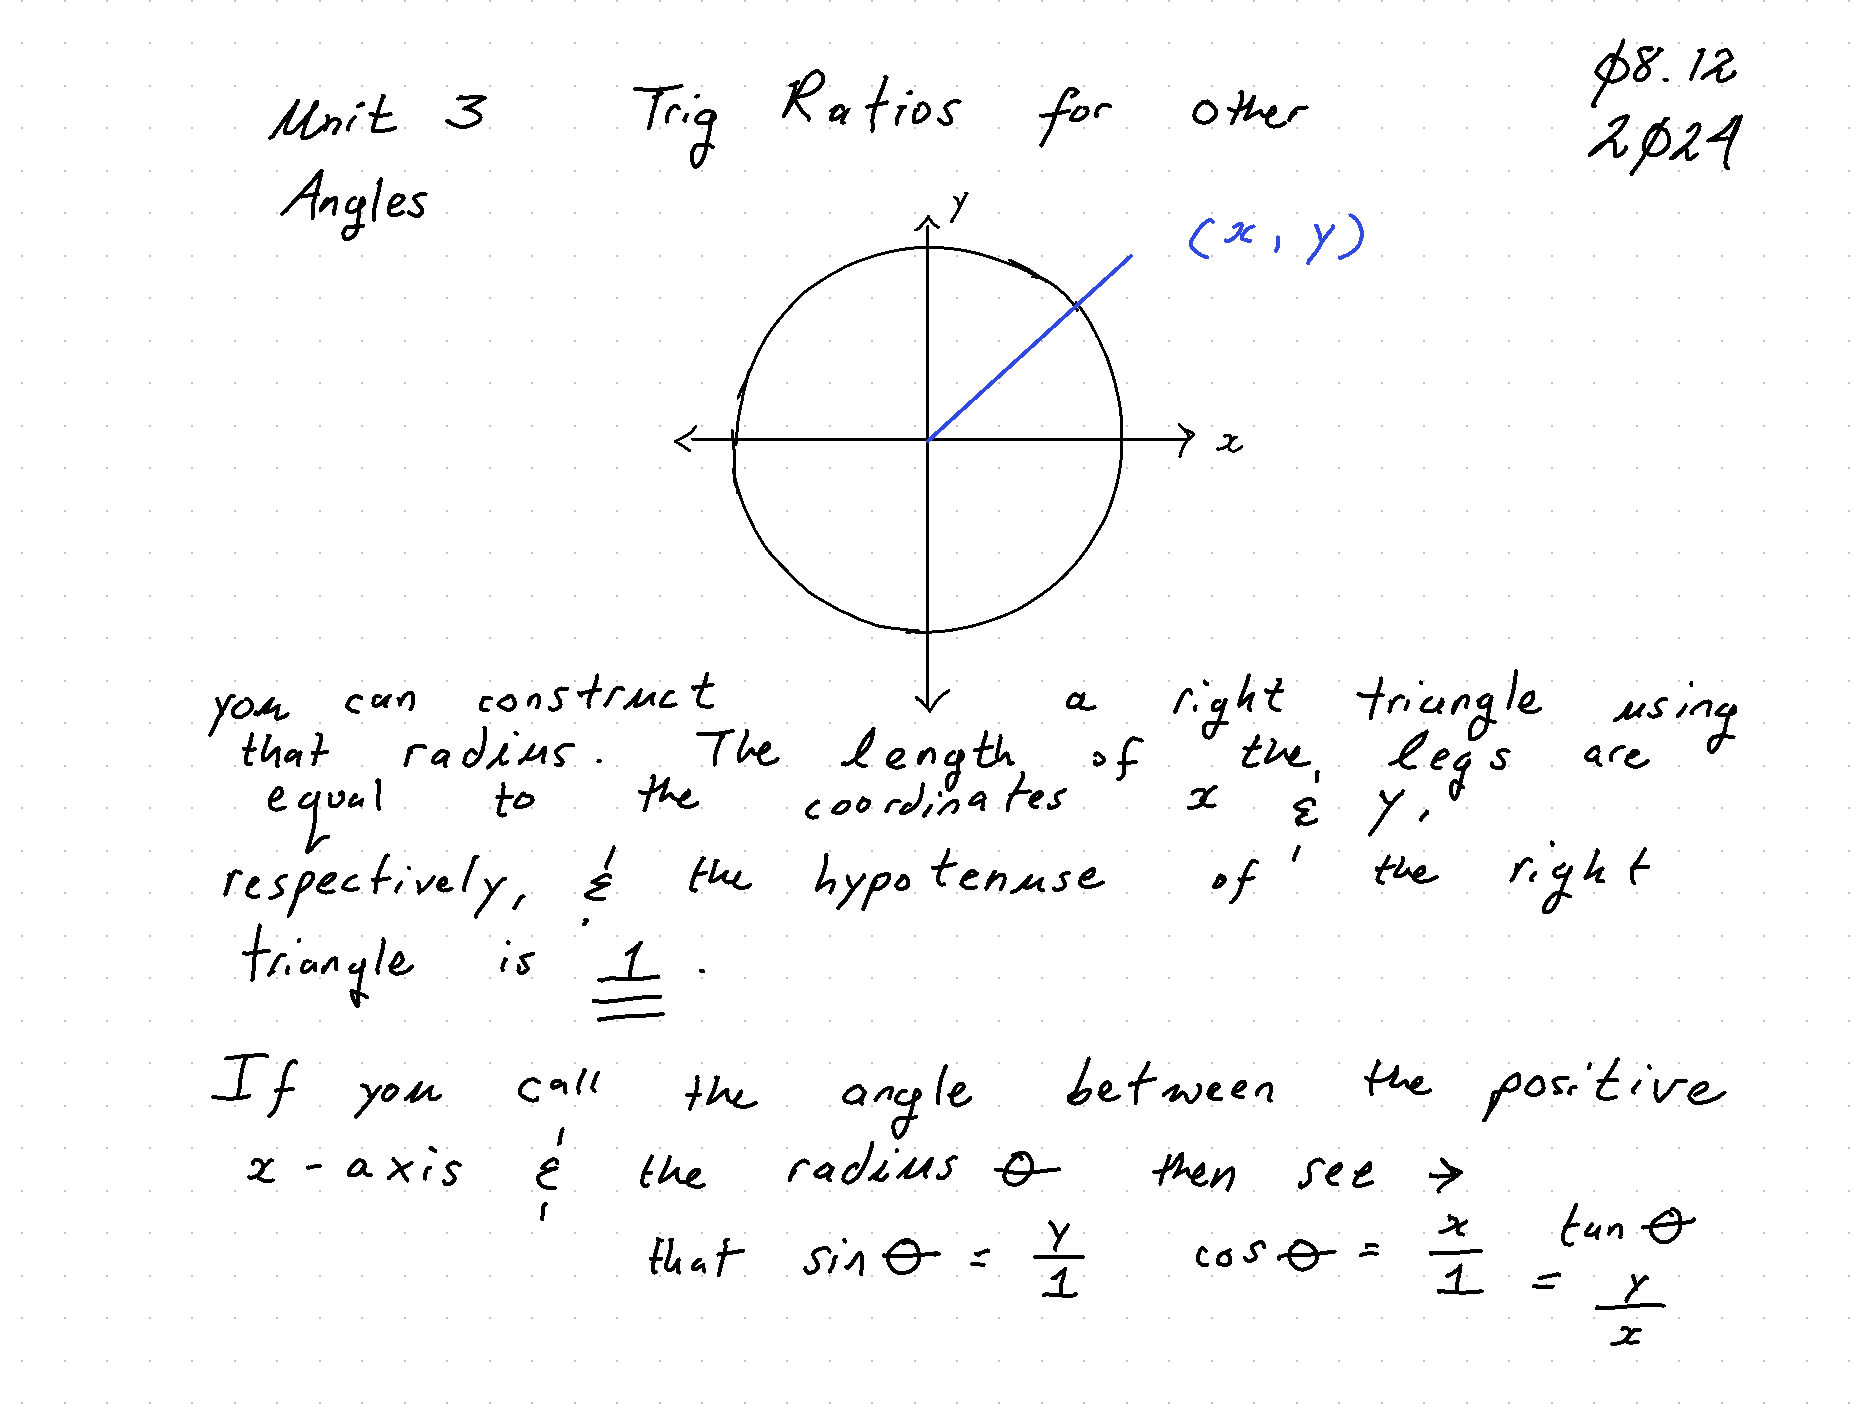 Unit 3 Trig Ratios for other
Angles
08.12
2024
y
(x, y)
x
you can construct a right triangle using
that radius. The length of the legs are
equal to the coordinates x & y,
respectively, & the hypotenuse of the right
triangle is 1.
If you call the angle between the positive
x-axis & the radius θ then see →
that sin θ = y/1 cos θ = x/1 tan θ = y/x